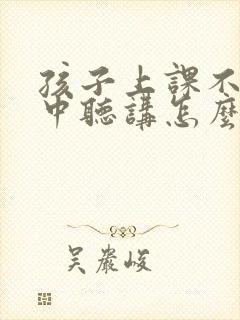 孩子上課不
中聽講怎麼
吳嚴峻